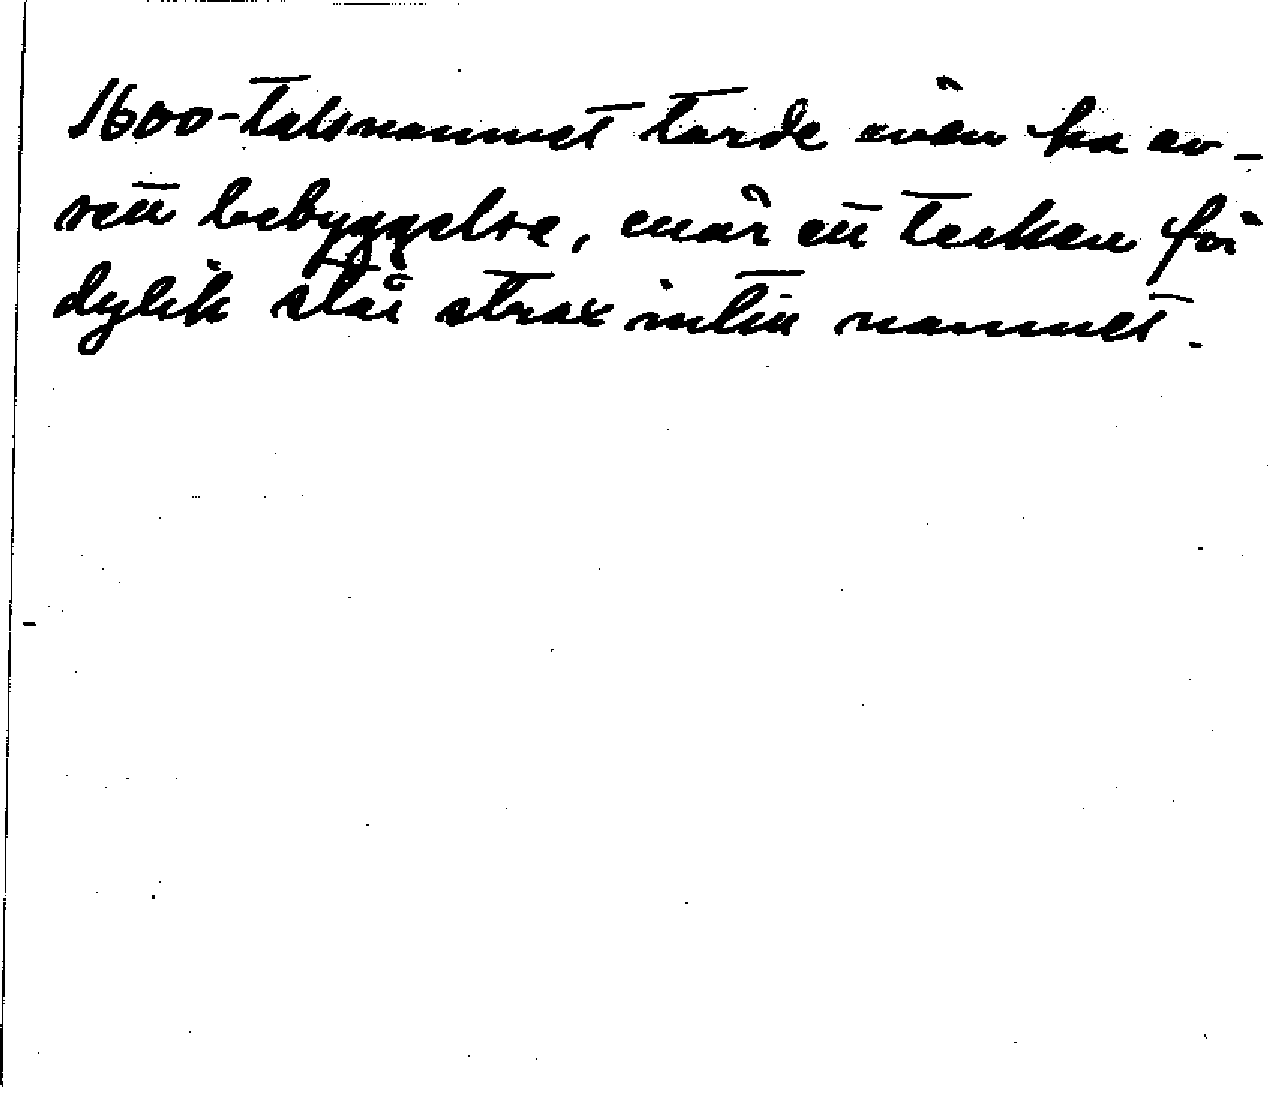 1600-talsnamnet torde även ha av-
sett bebyggelse, enär ett tecken för
dylik står strax intill namnet.